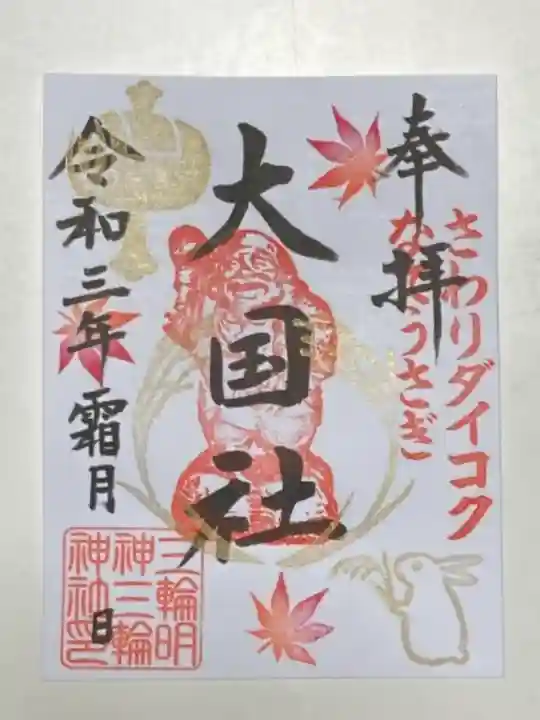 奉拝
さわりダイコク
なでうさぎ
大国社
令和三年霜月
日
三輪明
神三輪
神社印